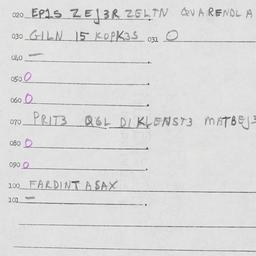 020 EP1S ZEJ3R ZELTN QVARENDLA
030 GILN 15 KOPK3S 031 O
040 —
050 0
060 0
070 PRIT3 QGL DIKLENST3 MATBEJ3
080 0
090 0
100 FARDINTASAX
101 —